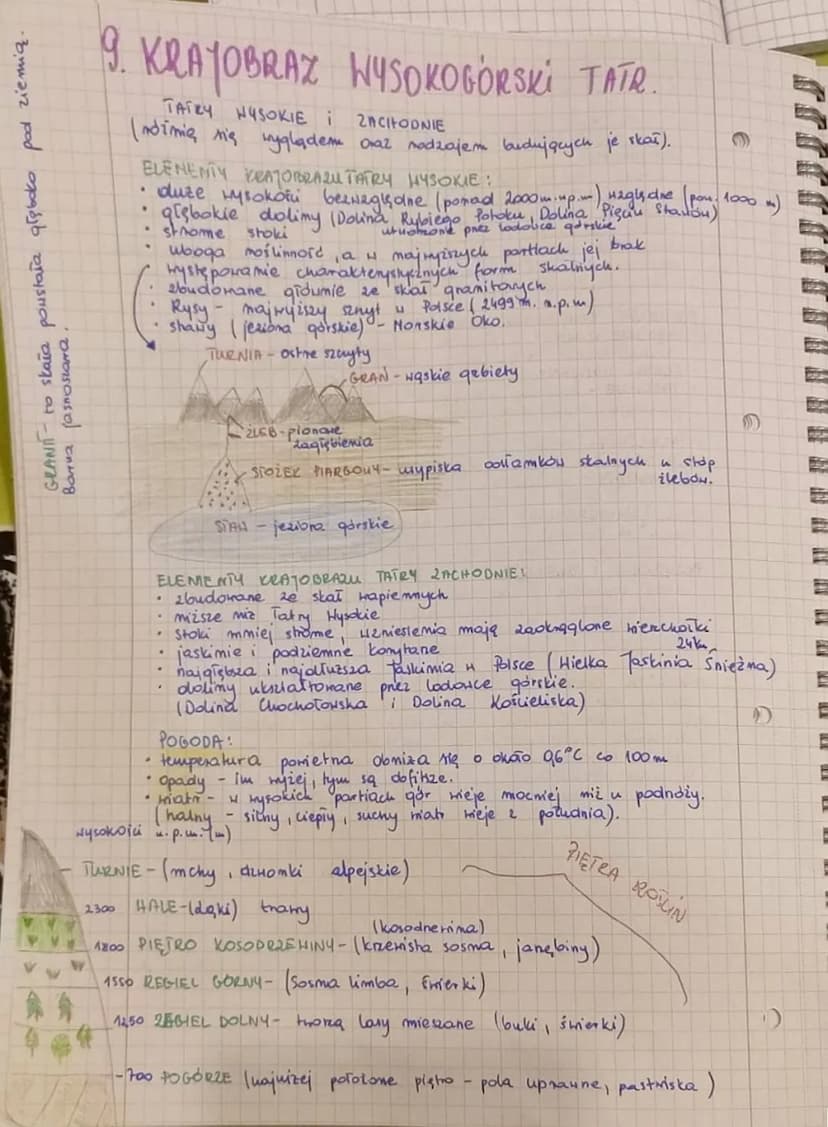 9. KRAJOBRAZ WYSOKOGÓRSKI TATR.
TATRY WYSOKIE i ZACHODNIE
(różnią się wyglądem oraz rodzajem budujących je skał).
ELEMENTY KRAJOBRAZU TATRY WYSOKIE:
• duże wysokości bezwzględne (ponad 2000m.n.p.m) względne (pon. 1000 m)
• głębokie doliny (Dolina Rybiego Potoku, Dolina Pięciu Stawów)
• strome stoki utworzone przez lodowce górskie
• uboga roślinność, a w najwyższych partiach jej brak
• występowanie charakterystycznych form skalnych.
• zbudowane głównie ze skał granitowych
• Rysy - najwyższy szczyt w Polsce (2499 m. n.p.m)
• stawy (jeziora górskie) - Morskie Oko.
TURNIA - ostre szczyty
GRAŃ - wąskie grzbiety
ŻLEB - pionowe
zagłębienia
STOŻEK PIARGOWY - usypiska odłamków skalnych u stóp
żlebów.
STAW - jeziora górskie
ELEMENTY KRAJOBRAZU TATRY ZACHODNIE:
• zbudowane ze skał wapiennych
• niższe niż Tatry Wysokie
• stoki mniej strome, wzniesienia mają zaokrąglone wierzchołki
• jaskinie i podziemne korytarze
24km
• najgłębsza i najdłuższa Jaskinia w Polsce (Wielka Jaskinia Śnieżna)
• doliny ukształtowane przez lodowce górskie.
(Dolina Chochołowska i Dolina Kościeliska)
POGODA:
• temperatura powietrza obniża się o około 0,6°C co 100m
• opady - im wyżej, tym są obfitsze.
• wiatr - w wysokich partiach gór wieje mocniej niż u podnóży.
(halny - silny, ciepły, suchy wiatr wieje z południa).
wysokości n.p.m. (m)
TURNIE - (mchy, dzwonki alpejskie)
2300 HALE - (łąki) trawy
(kosodrzewina)
1800 PIĘTRO KOSODRZEWINY - (krzewista sosna, jarzębiny)
1550 REGIEL GÓRNY - (Sosna limba, świerki)
1250 REGIEL DOLNY - tworzą lasy mieszane (buki, świerki)
-700 POGÓRZE (najniżej położone piętro - pola uprawne, pastwiska)
PIĘTRA ROŚLIN
GRANIT - to skała powstała głęboko pod ziemią.
Barwa jasnoszara.